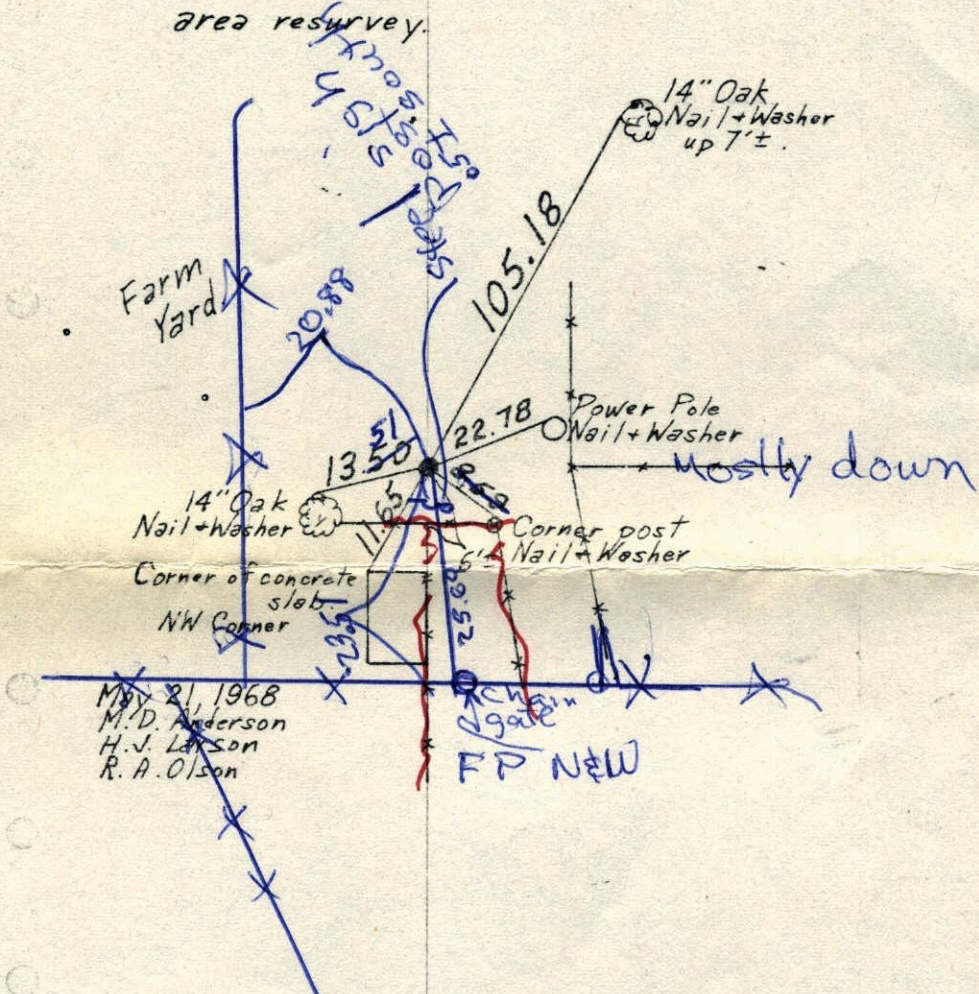 area resurvey.
14" Oak
Nail + Washer
up 7'±.
steel post
.5 S
105.18
Farm
Yard
20.88
51
13.50
22.78
Power Pole
Nail + Washer
Mostly down
14" Oak
Nail + Washer
11.65
Corner post
Nail + Washer
6'±
Corner of concrete
slab.
NW Corner
23.51
25.69
May 21, 1968
M. D. Anderson
H. J. Larson
R. A. Olson
chain
gate
FP N&W